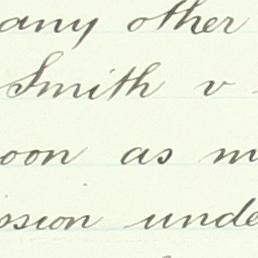 any other
Smith v
oon as m
ssion unde